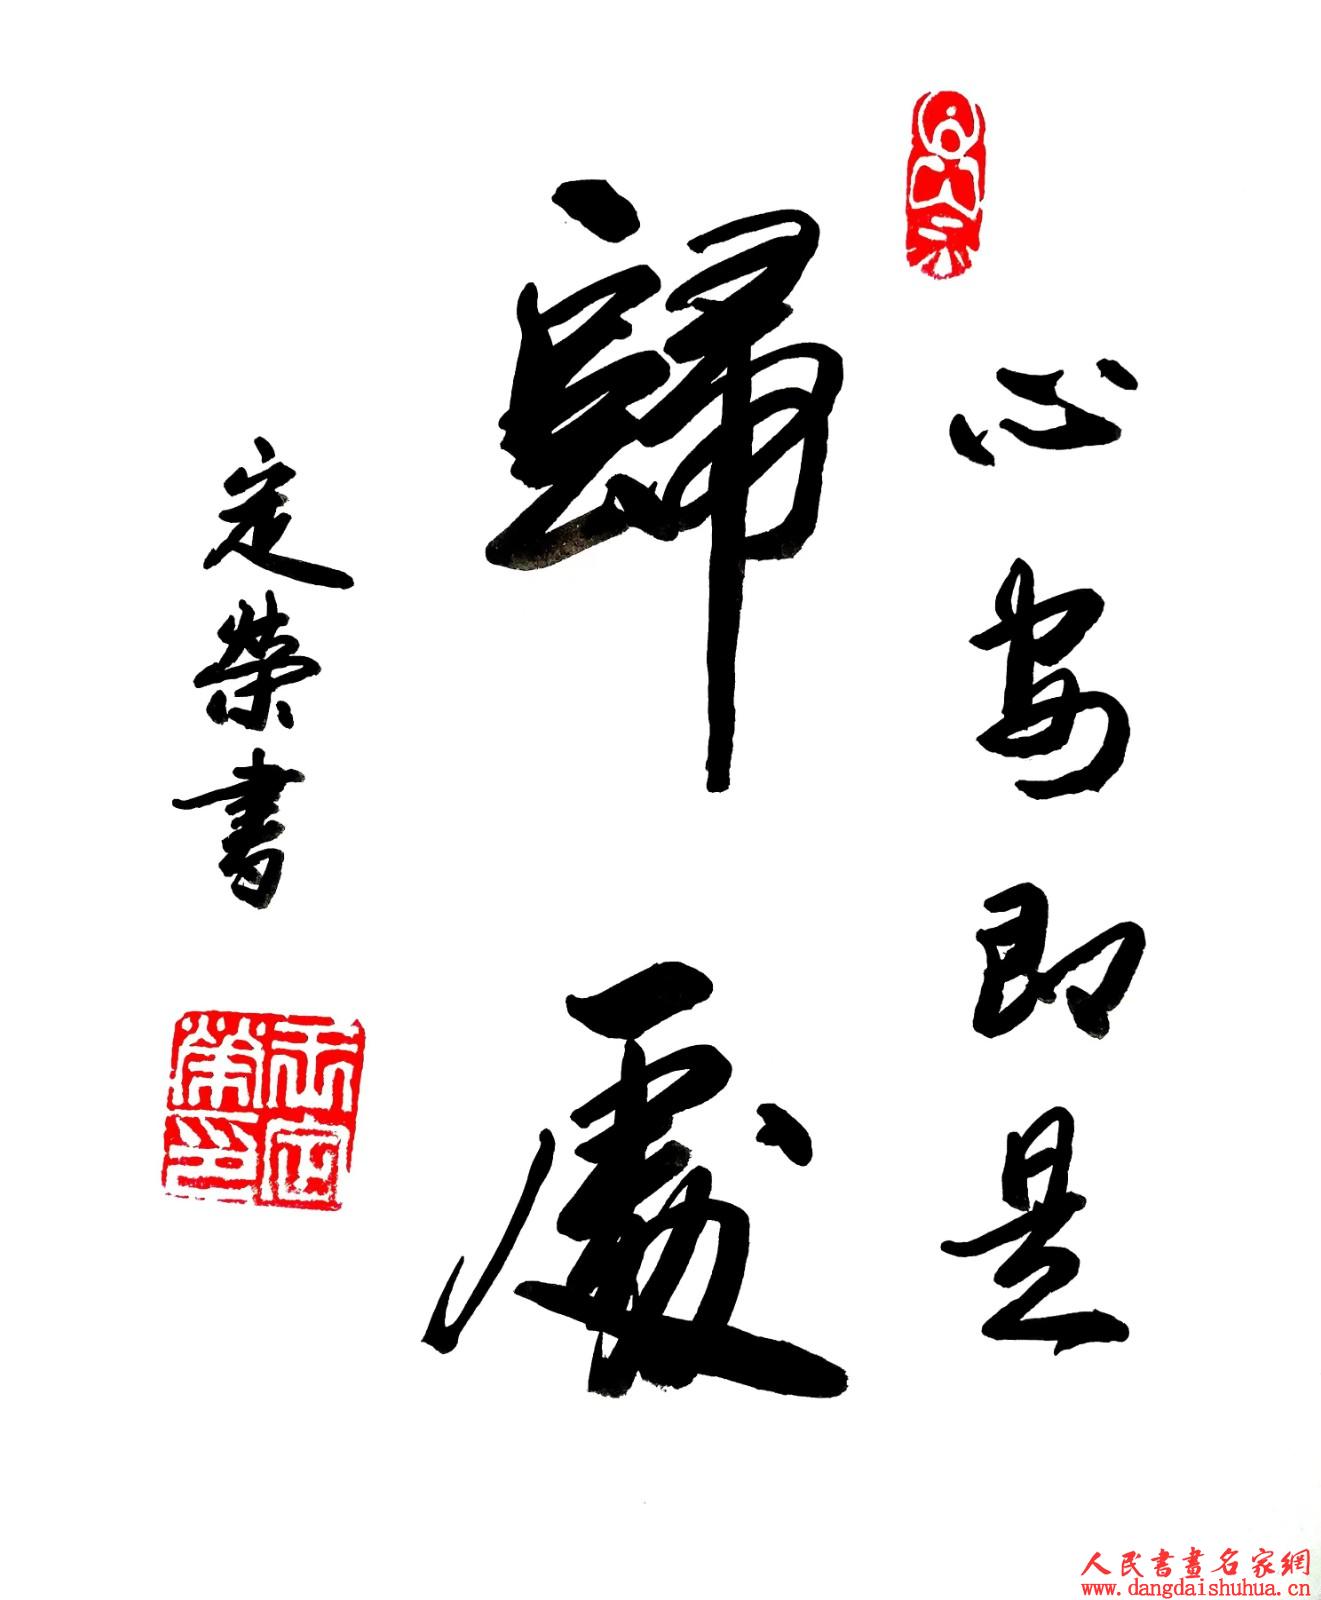 心安即是
歸處
定榮書
王定
榮印
人民書畫名家網
www.dangdaishuhua.cn